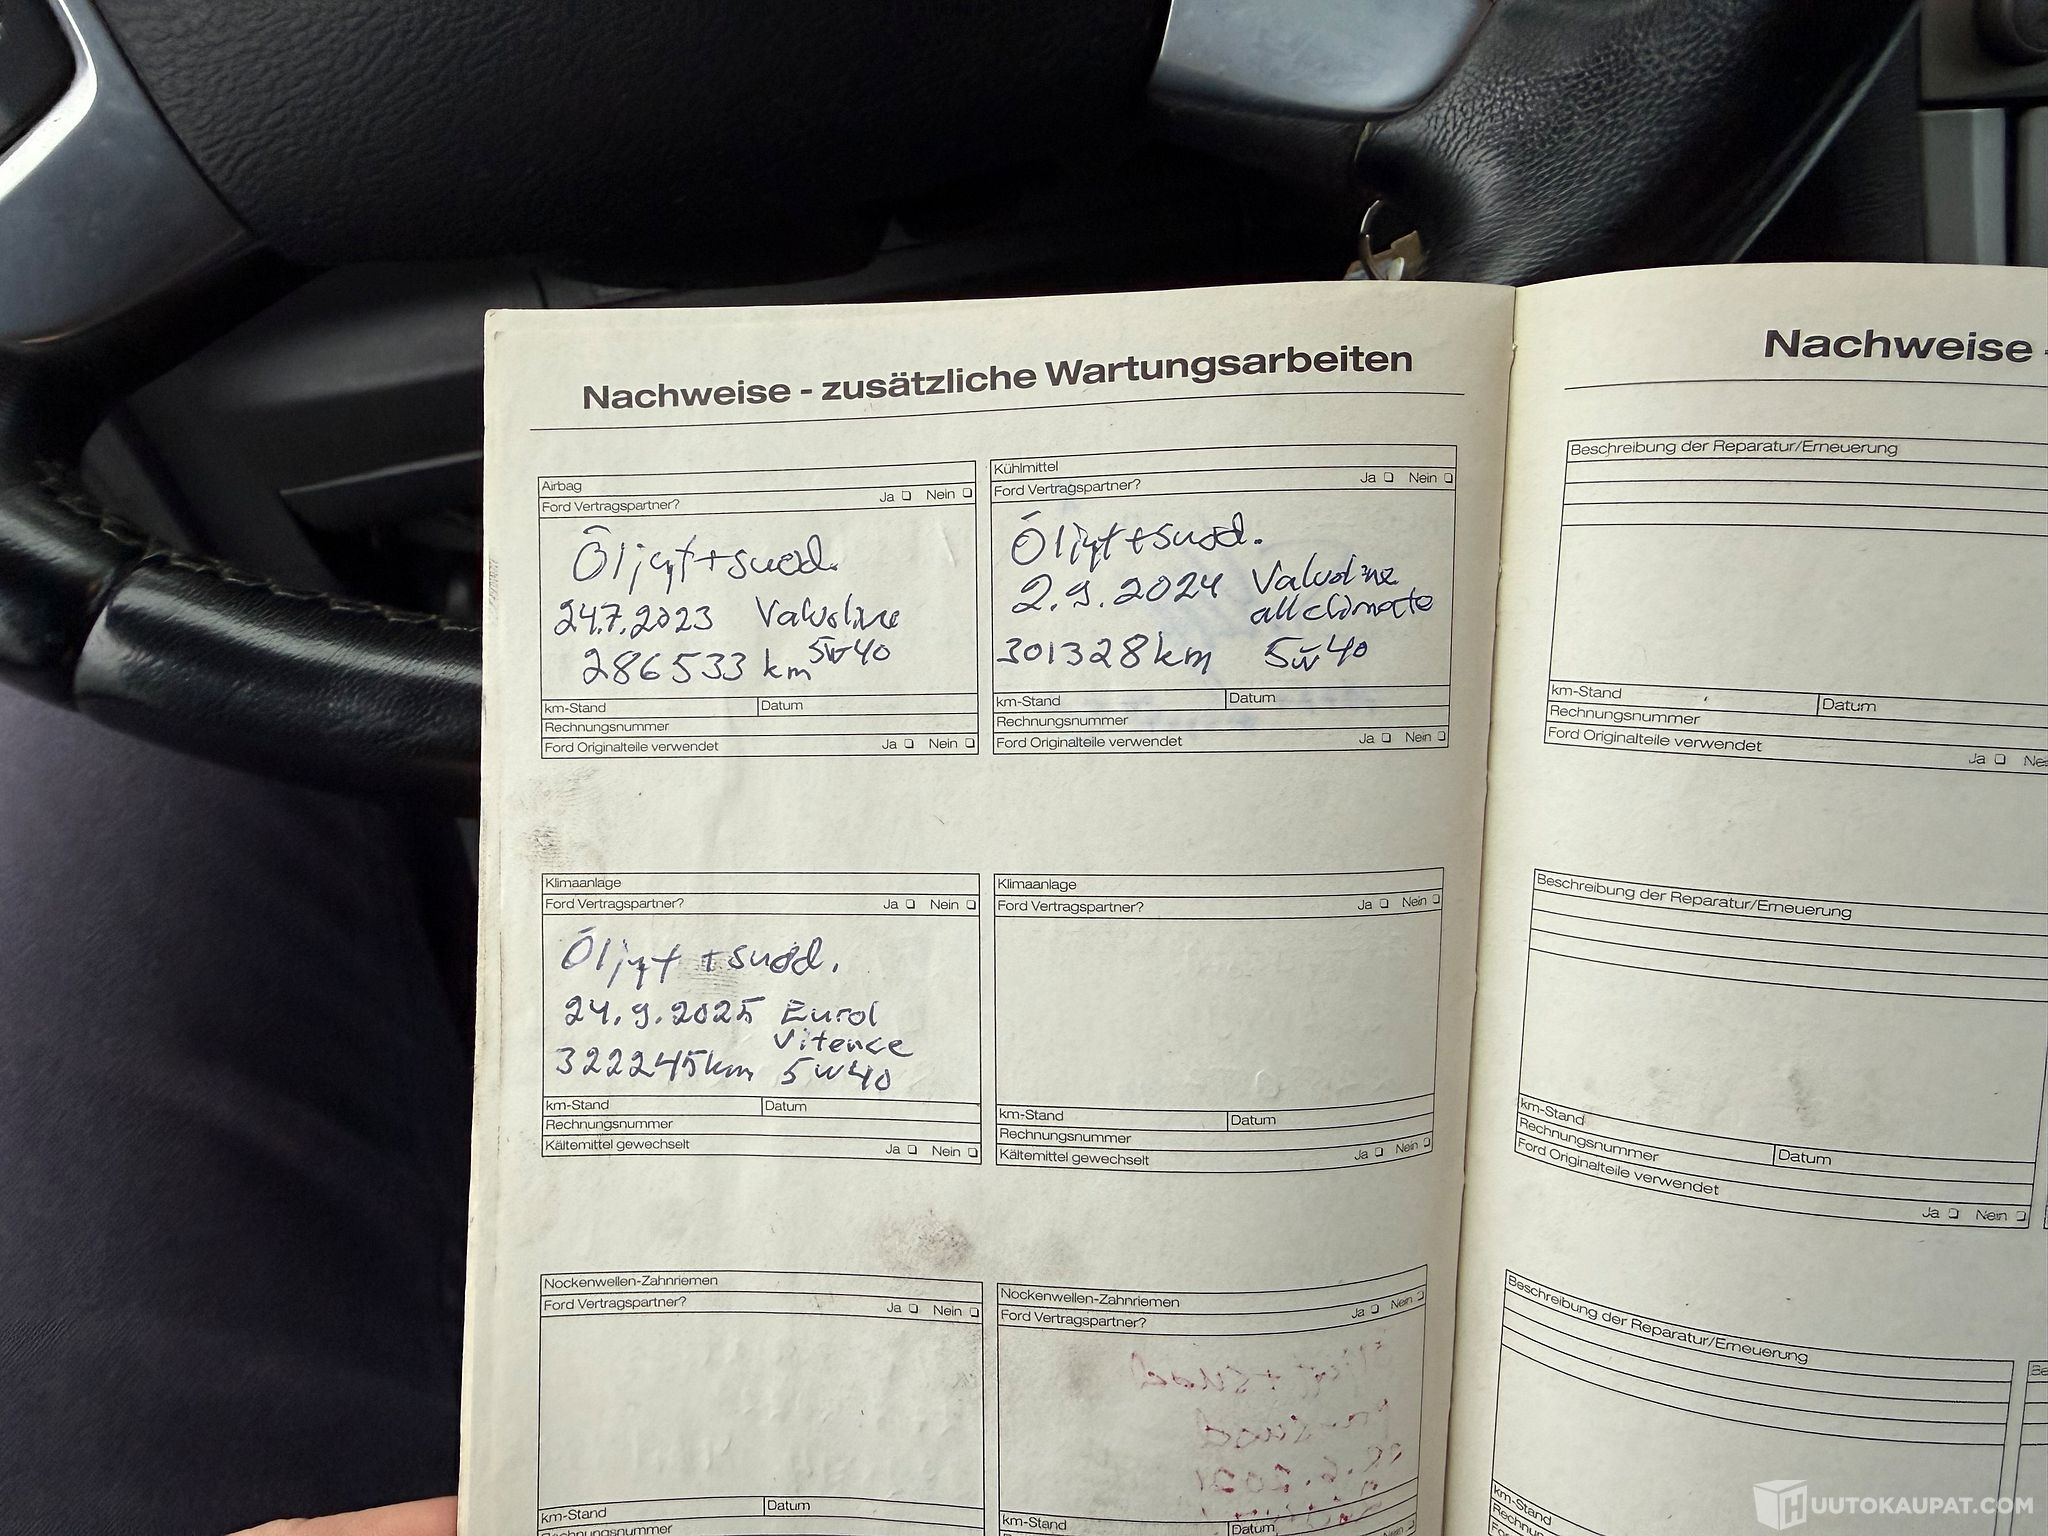 Nachweise - zusätzliche Wartungsarbeiten
Airbag
Ford Vertragspartner? Ja Nein
Öljyt+suod.
24.7.2023 Valvoline
5w40
286533 km
km-Stand Datum
Rechnungsnummer
Ford Originalteile verwendet Ja Nein
Kühlmittel
Ford Vertragspartner? Ja Nein
Öljyt+suod.
2.9.2024 Valvoline
all climate
301328km 5w40
km-Stand Datum
Rechnungsnummer
Ford Originalteile verwendet Ja Nein
Klimaanlage
Ford Vertragspartner? Ja Nein
Öljyt +suod.
24.9.2025 Eurol
Vitence
322245km 5w40
km-Stand Datum
Rechnungsnummer
Kältemittel gewechselt Ja Nein
Klimaanlage
Ford Vertragspartner? Ja Nein
km-Stand Datum
Rechnungsnummer
Kältemittel gewechselt Ja Nein
Nockenwellen-Zahnriemen
Ford Vertragspartner? Ja Nein
km-Stand Datum
Rechnungsnummer
Nockenwellen-Zahnriemen
Ford Vertragspartner? Ja Nein
km-Stand Datum
Nachweise -
Beschreibung der Reparatur/Erneuerung
km-Stand Datum
Rechnungsnummer
Ford Originalteile verwendet
Ja Ne
Beschreibung der Reparatur/Erneuerung
km-Stand
Rechnungsnummer Datum
Ford Originalteile verwendet
Ja Nein
Beschreibung der Reparatur/Erneuerung
Be
km-Stand
Rechnun
HUUTOKAUPAT.COM